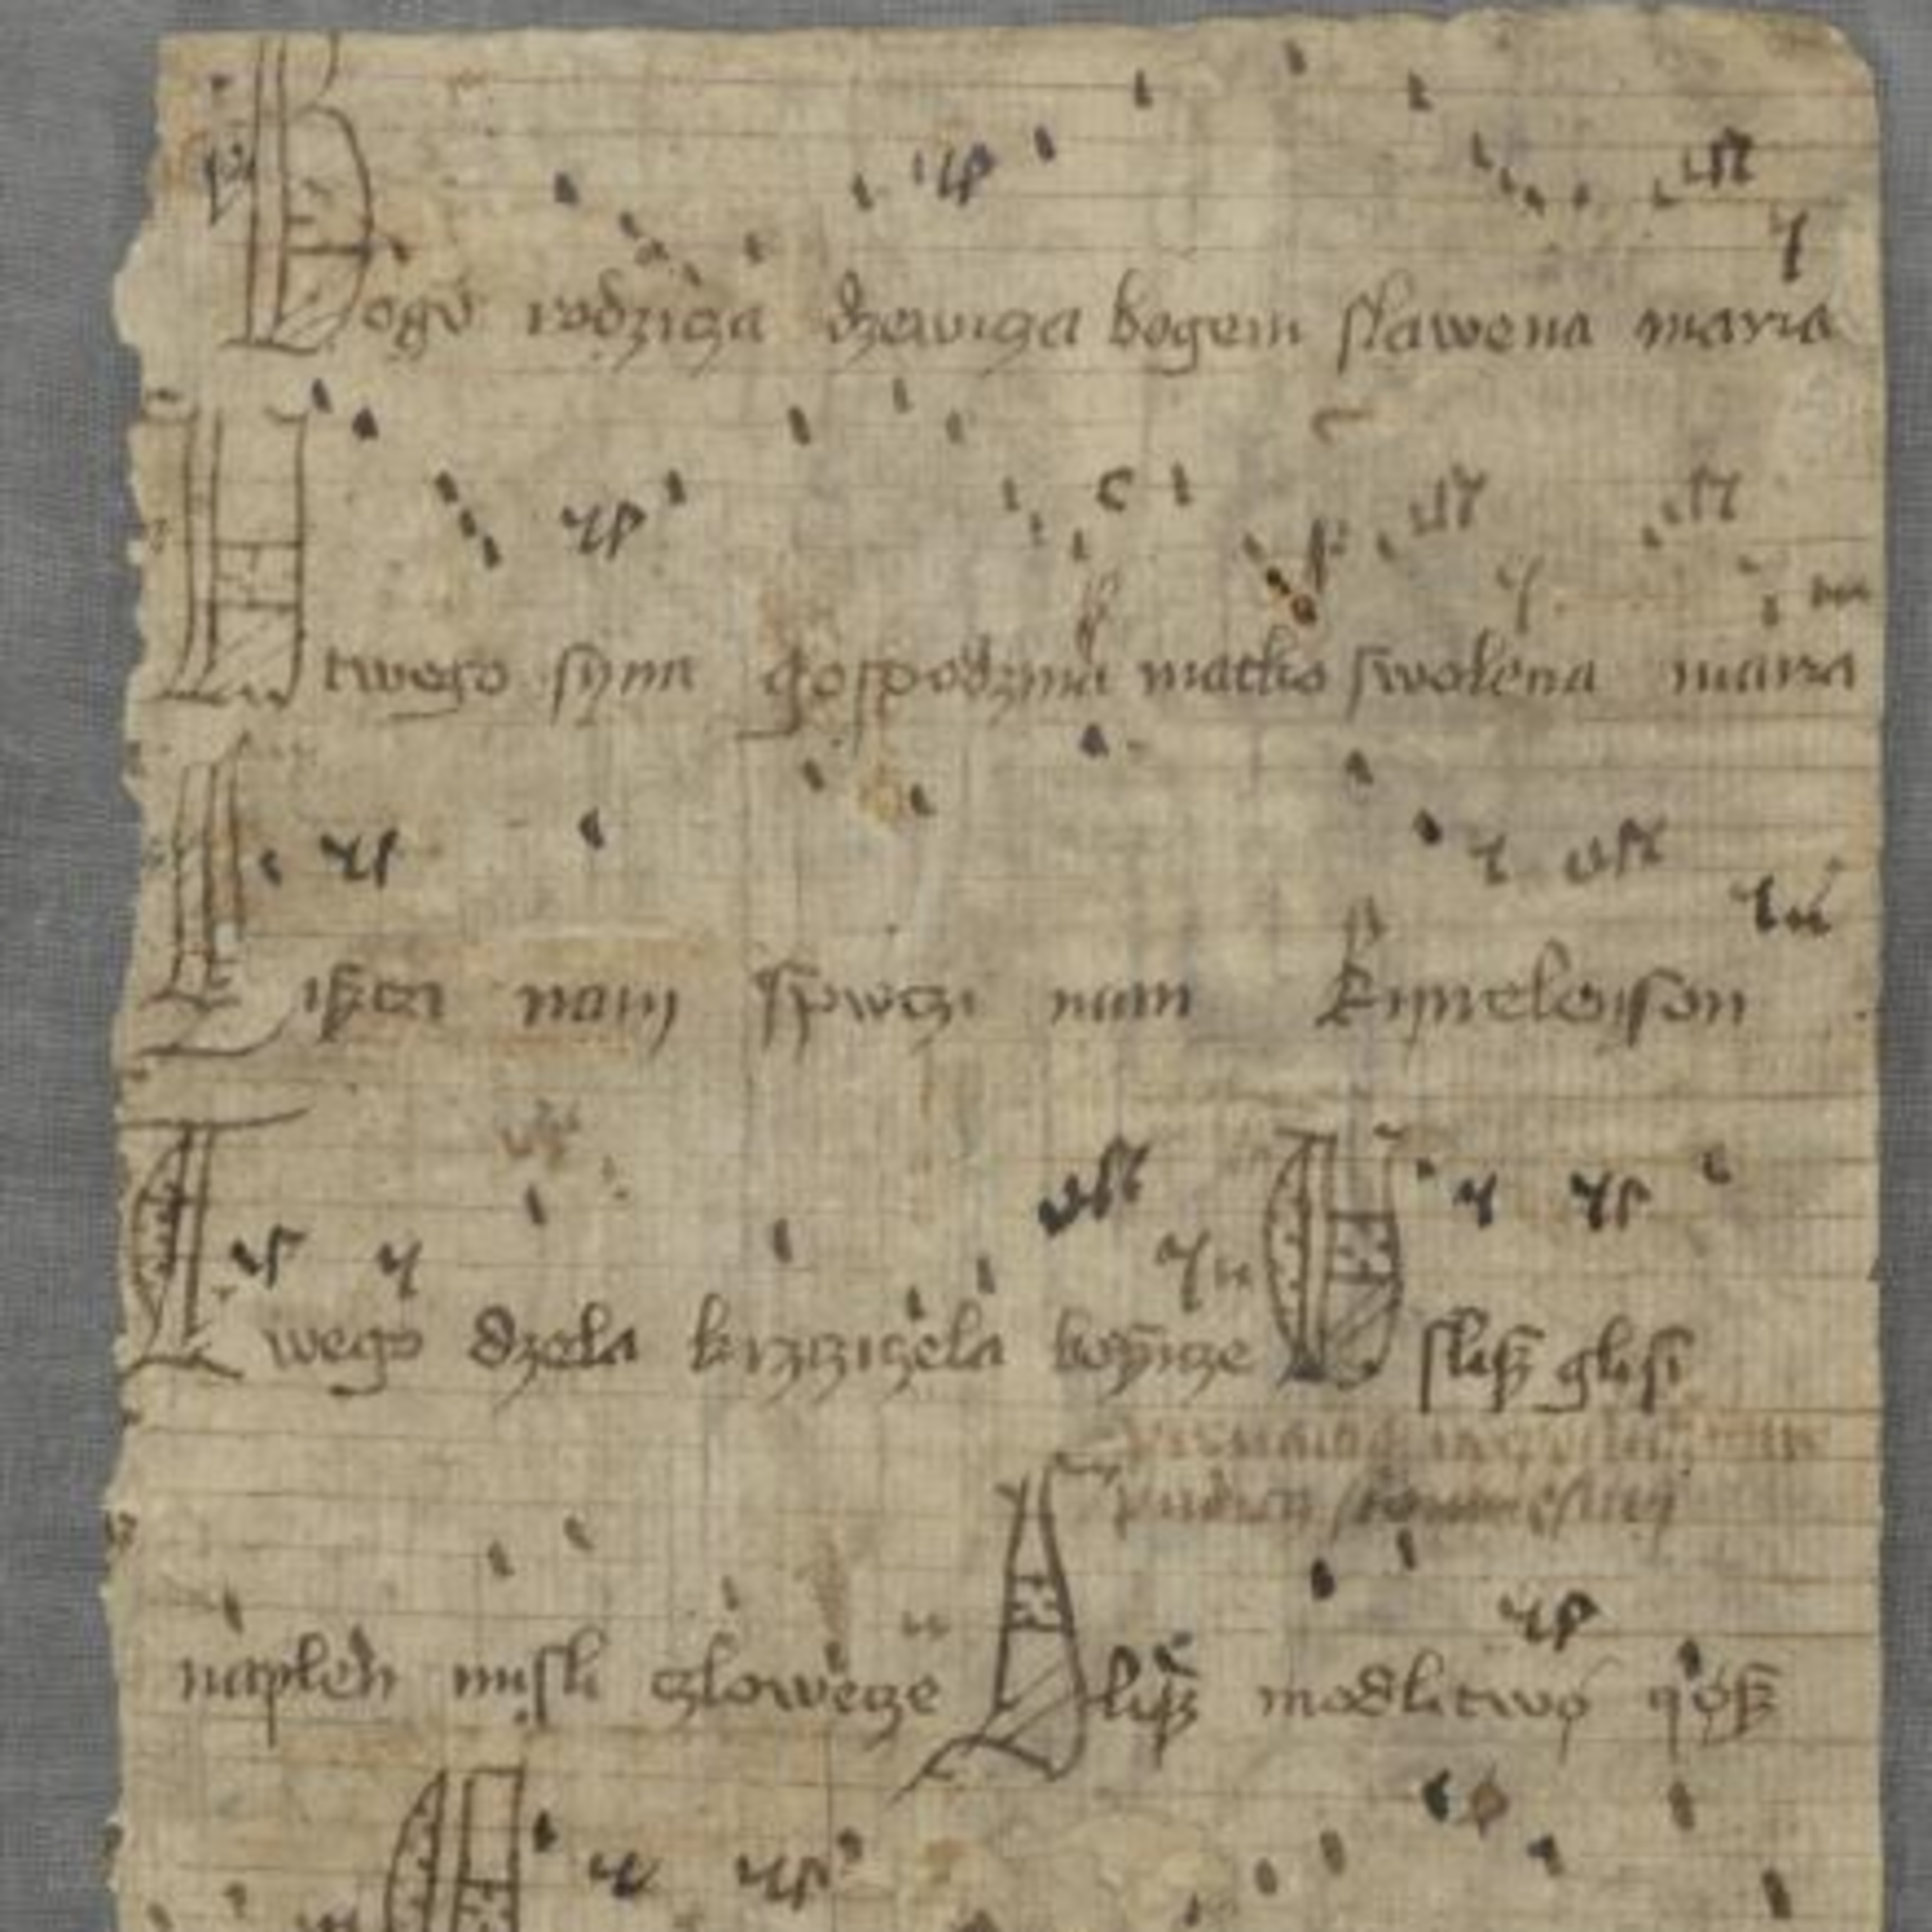 Bogu rodzicza dzewicza bogem slawena maria
U twego syna gospodzina matko swolena maria
Ziszczi nam spwczi nam kyrieleyson
Twego dzela krzcziczela bozicze Uslisz glosi
naplen misli czlowecze Slisz modlitwø jøsz